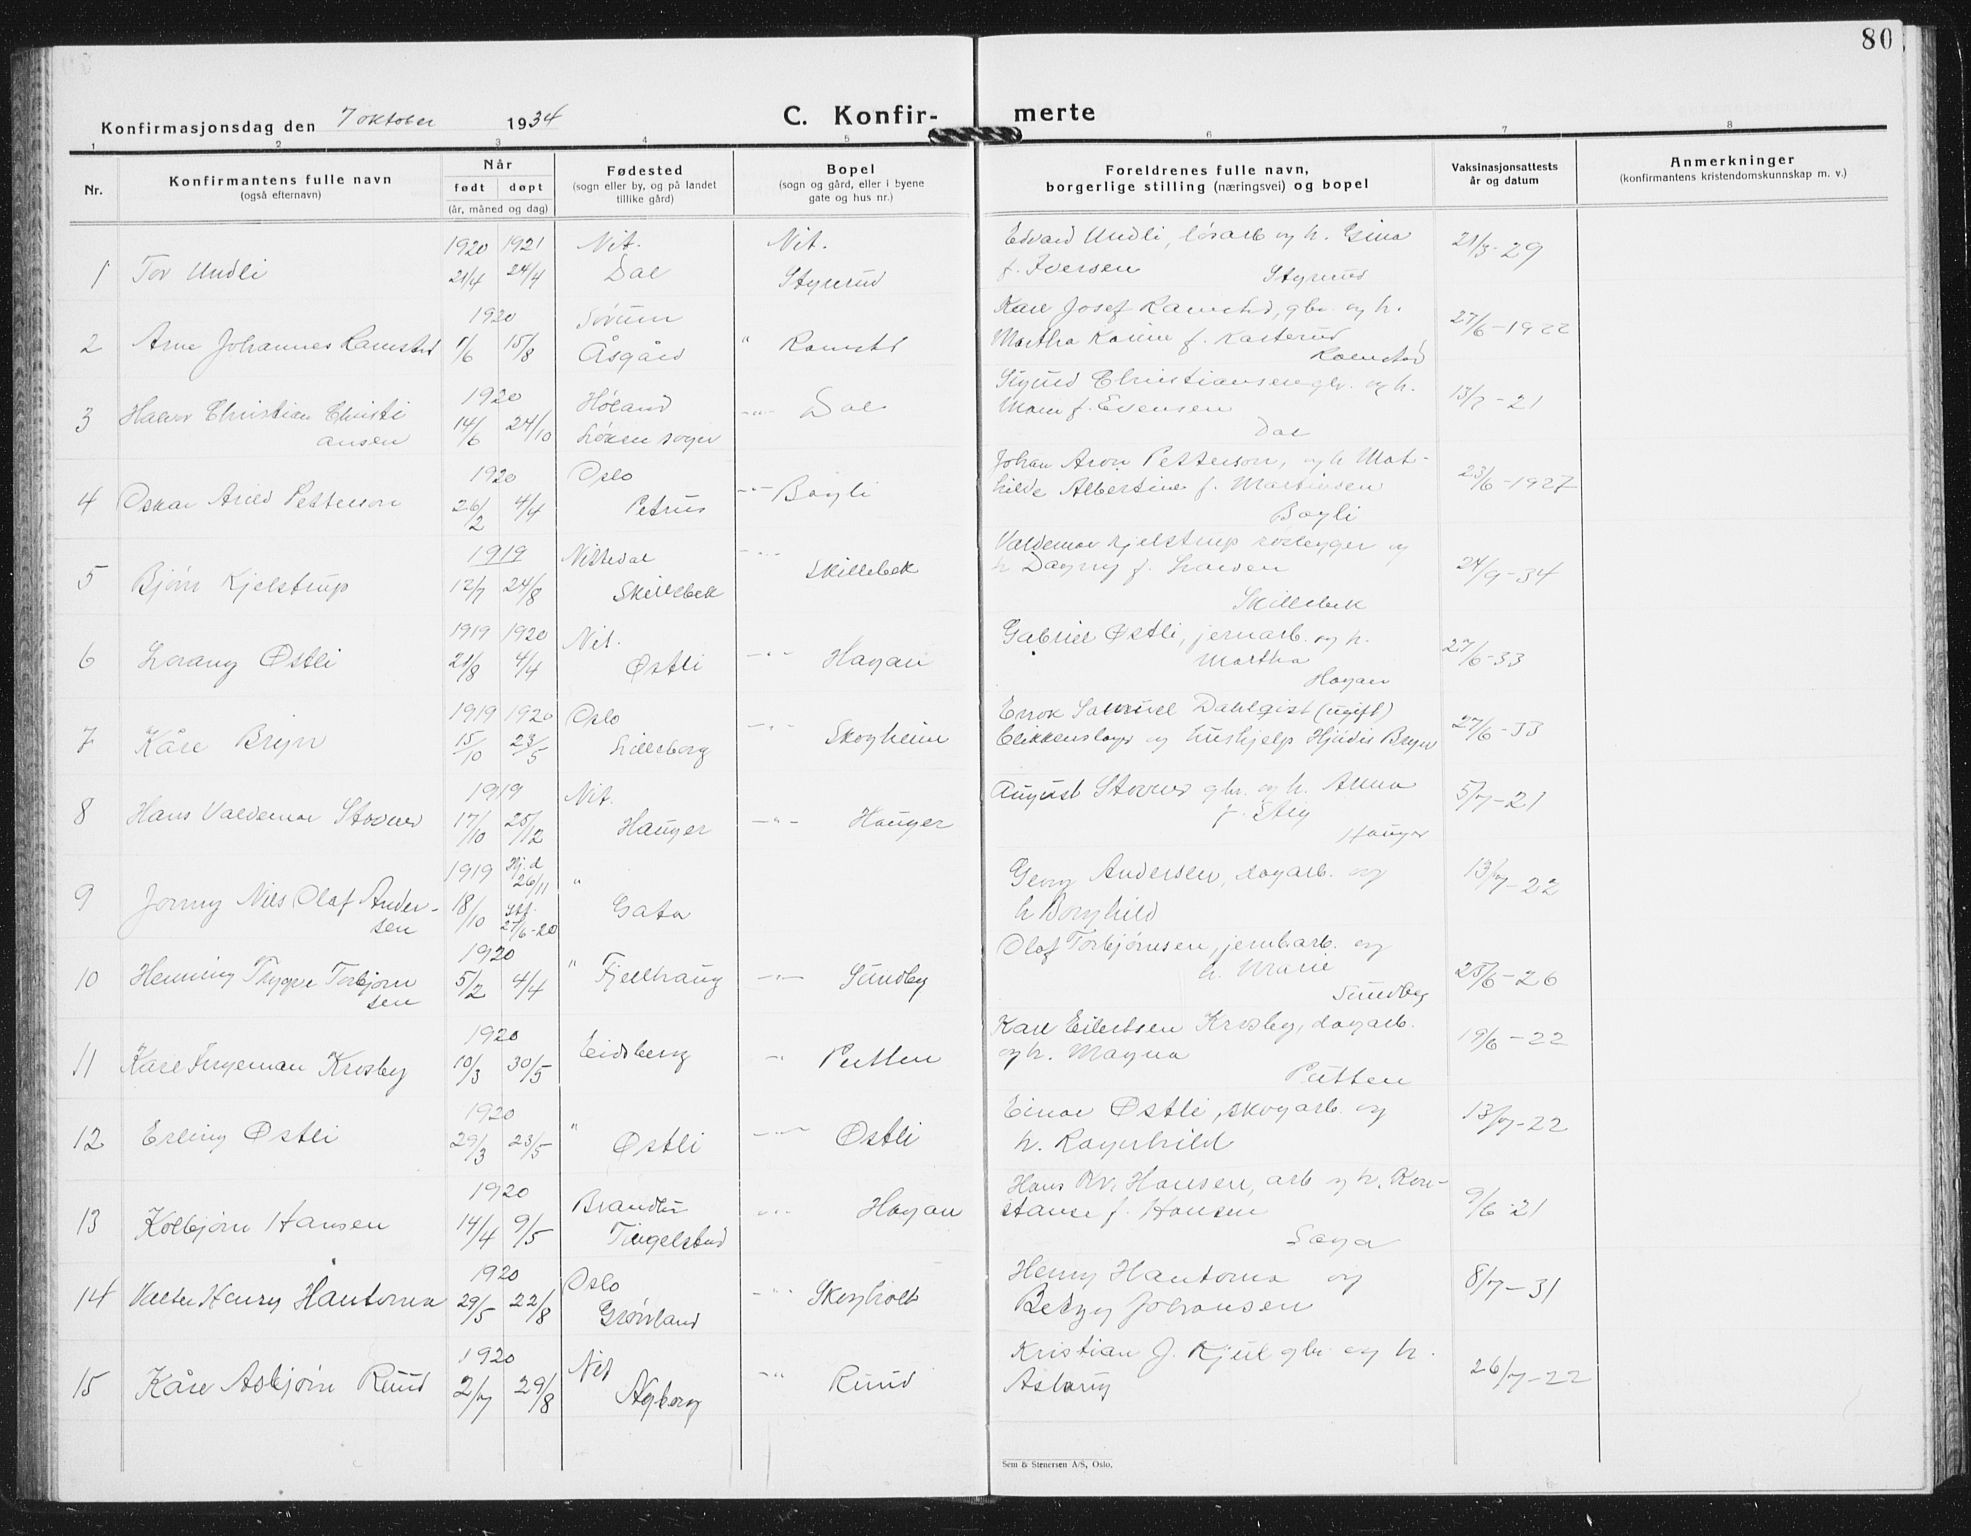 80
Konfirmasjonsdag den 7 oktober 1934
C. Konfir- merte
1 2 3 4 5 6 7 8
Nr.
Konfirmantens fulle navn
(også efternavn)
Når
født døpt
(år, måned og dag)
Fødested
(sogn eller by, og på landet
tillike gård)
Bopel
(sogn og gård, eller i byene
gate og hus nr.)
Foreldrenes fulle navn,
borgerlige stilling (næringsvei) og bopel
Vaksinasjonsattests
år og datum
Anmerkninger
(konfirmantens kristendomskunnskap m. v.)
1920 1921 Nit. Nit. Edvard Undli, løsarb og h. Gina 21/3-29
1 Tov Undli 21/4 24/4 Dal Styrerud f. Iversen Styrerud
1920 Sørum Karl Josef Ramstad, gbr. og h. 27/6-1922
2 Arne Johannes Ramstad 1/6 15/8 Åsgård " Ramstad Martha Karine f.
Ramstad
1920 Høland Sigurd Christiansen gbr. og h. 13/7-21
3 Christian Christi 14/6 24/10 Løken sogn -"- Dal f. Evensen
ansen Dal
1920 Oslo Johan Aron Petterson, og h Mat- 23/6-1927
4 Oskar Arild Petterson 26/2 4/4 Petrus -"- Bøyli hilde Albertine f. Martinsen
Bøyli
1919 Nittedal -"- Valdemar Kjelstrup og 24/9-34
5 Bjørn Kjelstrup 12/7 24/8 Skillebek Skillebek h Dagny f. Larsen
Skillebek
1919 1920 Nit. Gabriel Østli, jernarb. og h. 27/6-33
6 Lorang Østli 21/8 4/4 Østli -"- Hagan Martha
Hagan
1919 1920 Oslo Samuel Dahlqist (ugift) 27/6-33
7 Kåre Bryn 15/10 23/5 Lilleborg -"- Skogheim Blikkenslager og hushjelp Hjördis Bryn
1919 Nit. August Stovner gbr. og h. Anna 5/7-21
8 Hans Valdemar Stovner 17/10 25/12 Hauger -"- Hauger f. Stig
Hauger
1919 Hj.d 26/11 " Georg Andersen, dagarb. og 13/7-22
9 Jonny Nils Olaf Ander- 18/10 stf. 27/6-20 Gata h Borghild
sen
1920 Olaf Torbjørnsen, jernbarb. og
10 Henning Trygve Torbjørn 5/2 4/4 " Fjellhaug -"- Sundby h. Marie 25/6-26
sen Sundby
1920 Karl Eilertsen Krosby, dagarb. 19/6-22
11 Kåre Ingeman Krosby 10/3 30/5 Eidsberg " Putten og h. Magna
Putten
1920 Einar Østli, skogarb. og 13/7-22
12 Erling Østli 29/3 23/5 " Østli -"- Østli h. Ragnhild
1920 Brandbu Hans Hansen, arb og h. Kon- 9/6-21
13 Kolbjørn Hansen 14/4 9/5 Tingelstad -"- Hagan stanse f. Hansen
Saga
1920 Oslo Henry Hantorna og 8/7-31
14 Valter Henry Hantorna 29/5 22/8 Grønland -"- Skogholt Betzy Johansen
1920 Nit Kristian J. Kjul gbr og h. 26/7-22
15 Kåre Asbjørn Ruud 2/7 29/8 Nyborg -"- Ruud Aslaug
Sem & Stenersen A/S, Oslo.